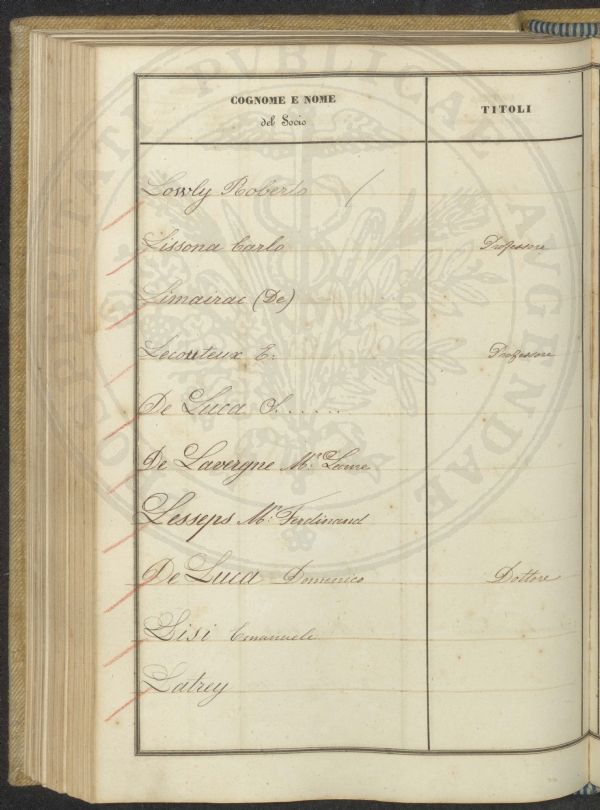 COGNOME E NOME
del Socio
TITOLI
Lowly Roberto
Lissona Carlo Professore
Limairac (De)
Lecouteux E. Professore
De Luca S.......
De Lavergne Mr. Leone
Lesseps Mr. Ferdinand
De Luca Domenico Dottore
Lisi Emanuele
Latrey
PROSPERITATI PUBLICAE AUGENDAE